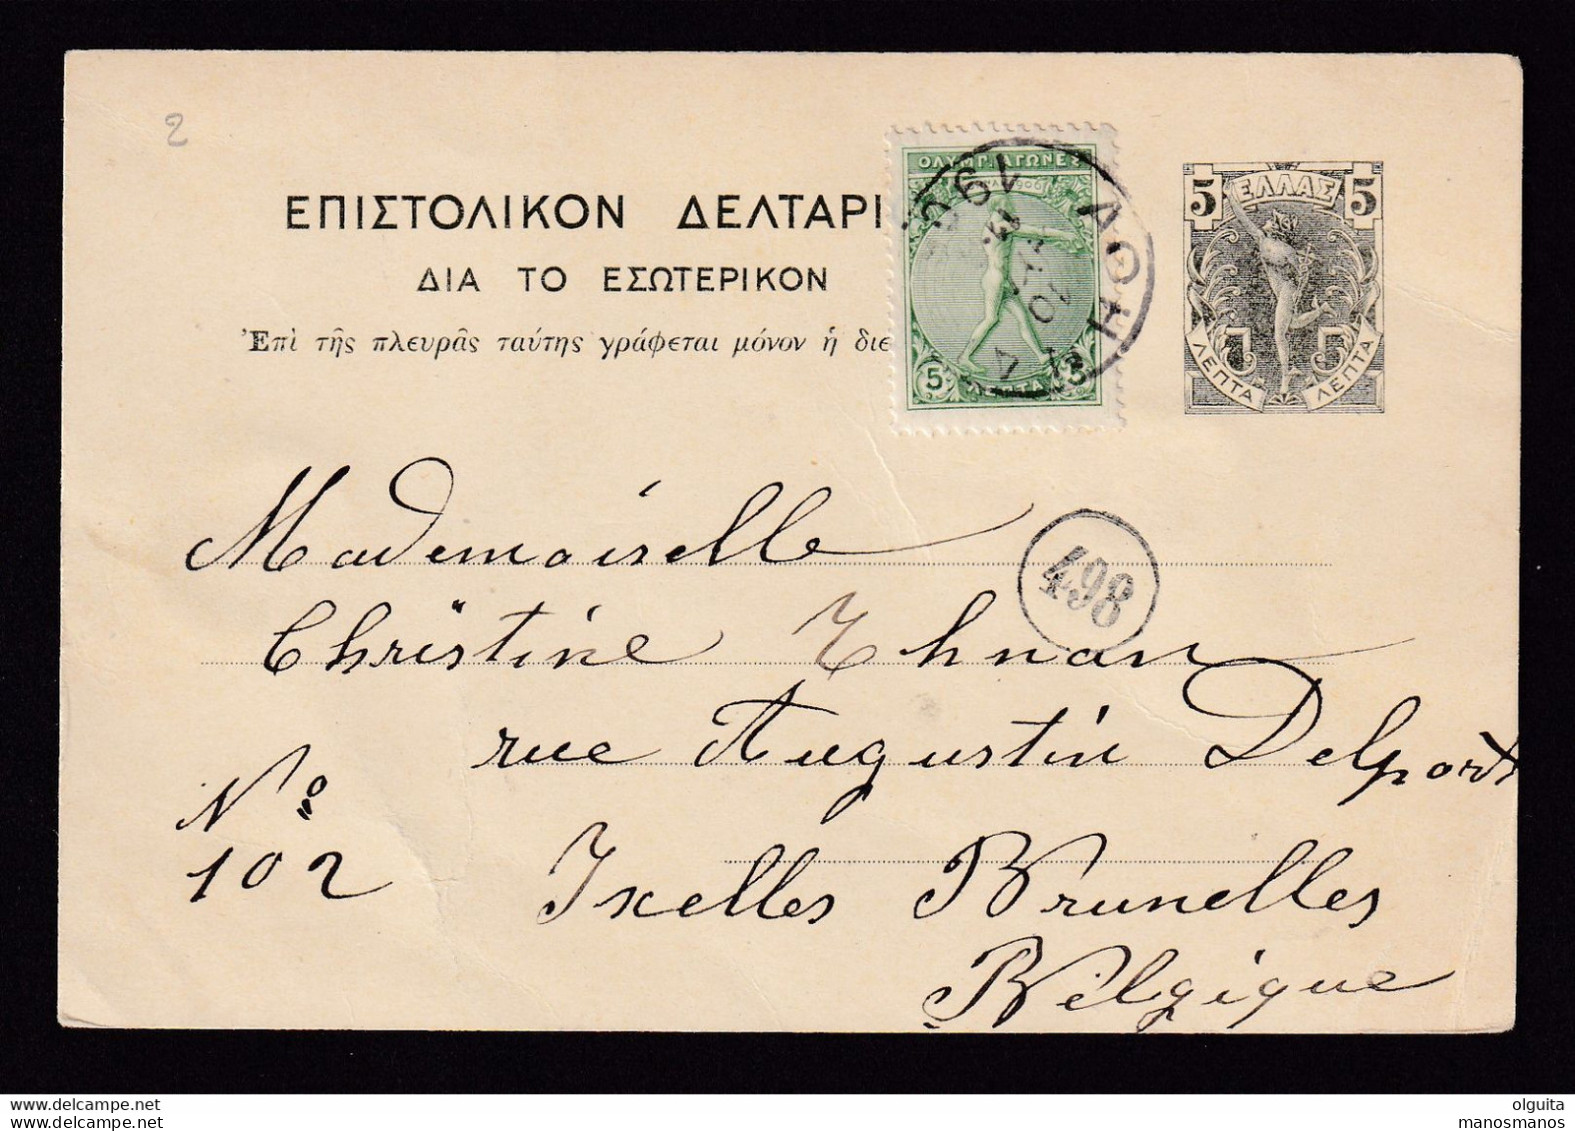 2
ΕΠΙΣΤΟΛΙΚΟΝ ΔΕΛΤΑΡΙ
ΔΙΑ ΤΟ ΕΣΩΤΕΡΙΚΟΝ
Ἐπὶ τῆς πλευρᾶς ταύτης γράφεται μόνον ἡ διε
ΟΛΥΜΠ. ΑΓΩΝΕΣ
5 ΛΕΠΤΑ 5
ΑΘΗ
5 ΕΛΛΑΣ 5
ΛΕΠΤΑ ΛΕΠΤΑ
Mademoiselle
498
Christine Thnan
rue Augustin Delporte
No
102
Ixelles Brunelles
Belgique
olguita
manosmanos